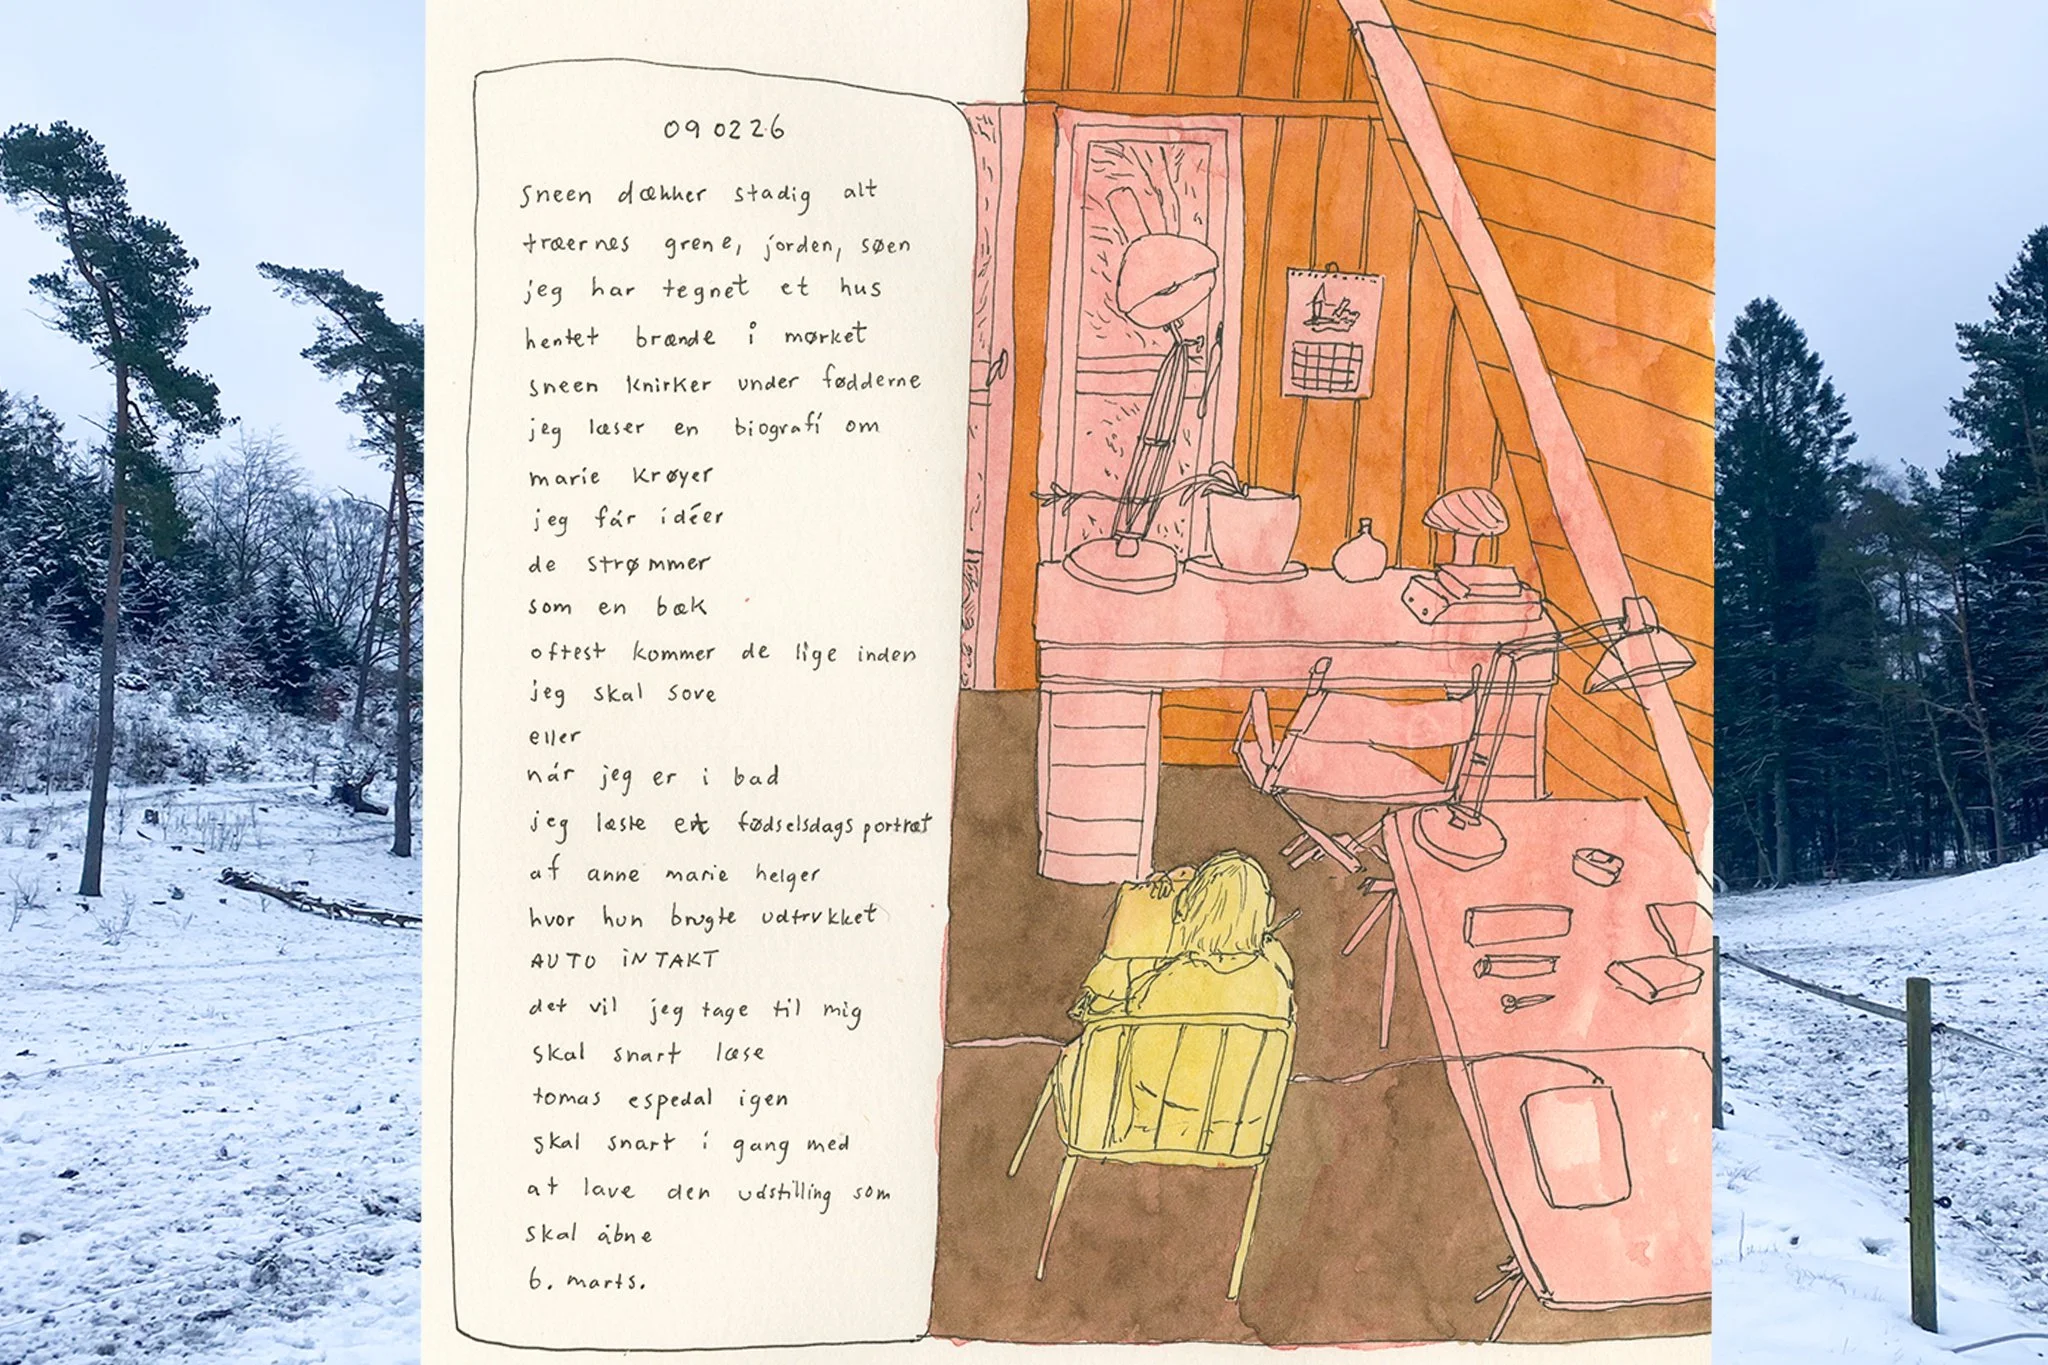 090226
sneen dækker stadig alt
træernes grene, jorden, søen
jeg har tegnet et hus
hentet brænde i mørket
sneen knirker under fødderne
jeg læser en biografi om
marie krøyer
jeg får idéer
de strømmer
som en bæk
oftest kommer de lige inden
jeg skal sove
eller
når jeg er i bad
jeg læste et fødselsdagsportræt
af anne marie helger
hvor hun brugte udtrykket
AUTO iNTAKT
det vil jeg tage til mig
skal snart læse
tomas espedal igen
skal snart i gang med
at lave den udstilling som
skal åbne
6. marts.